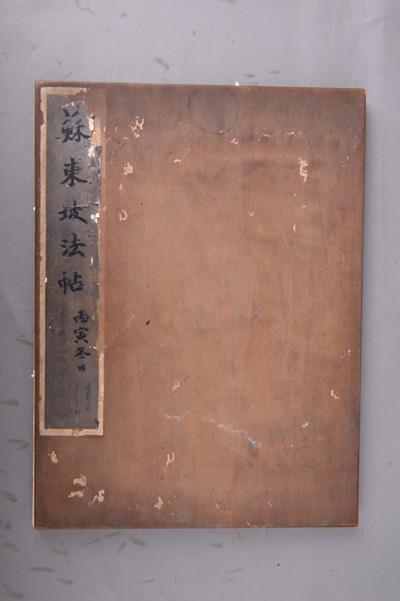 蘇東坡法帖
丙寅冬日